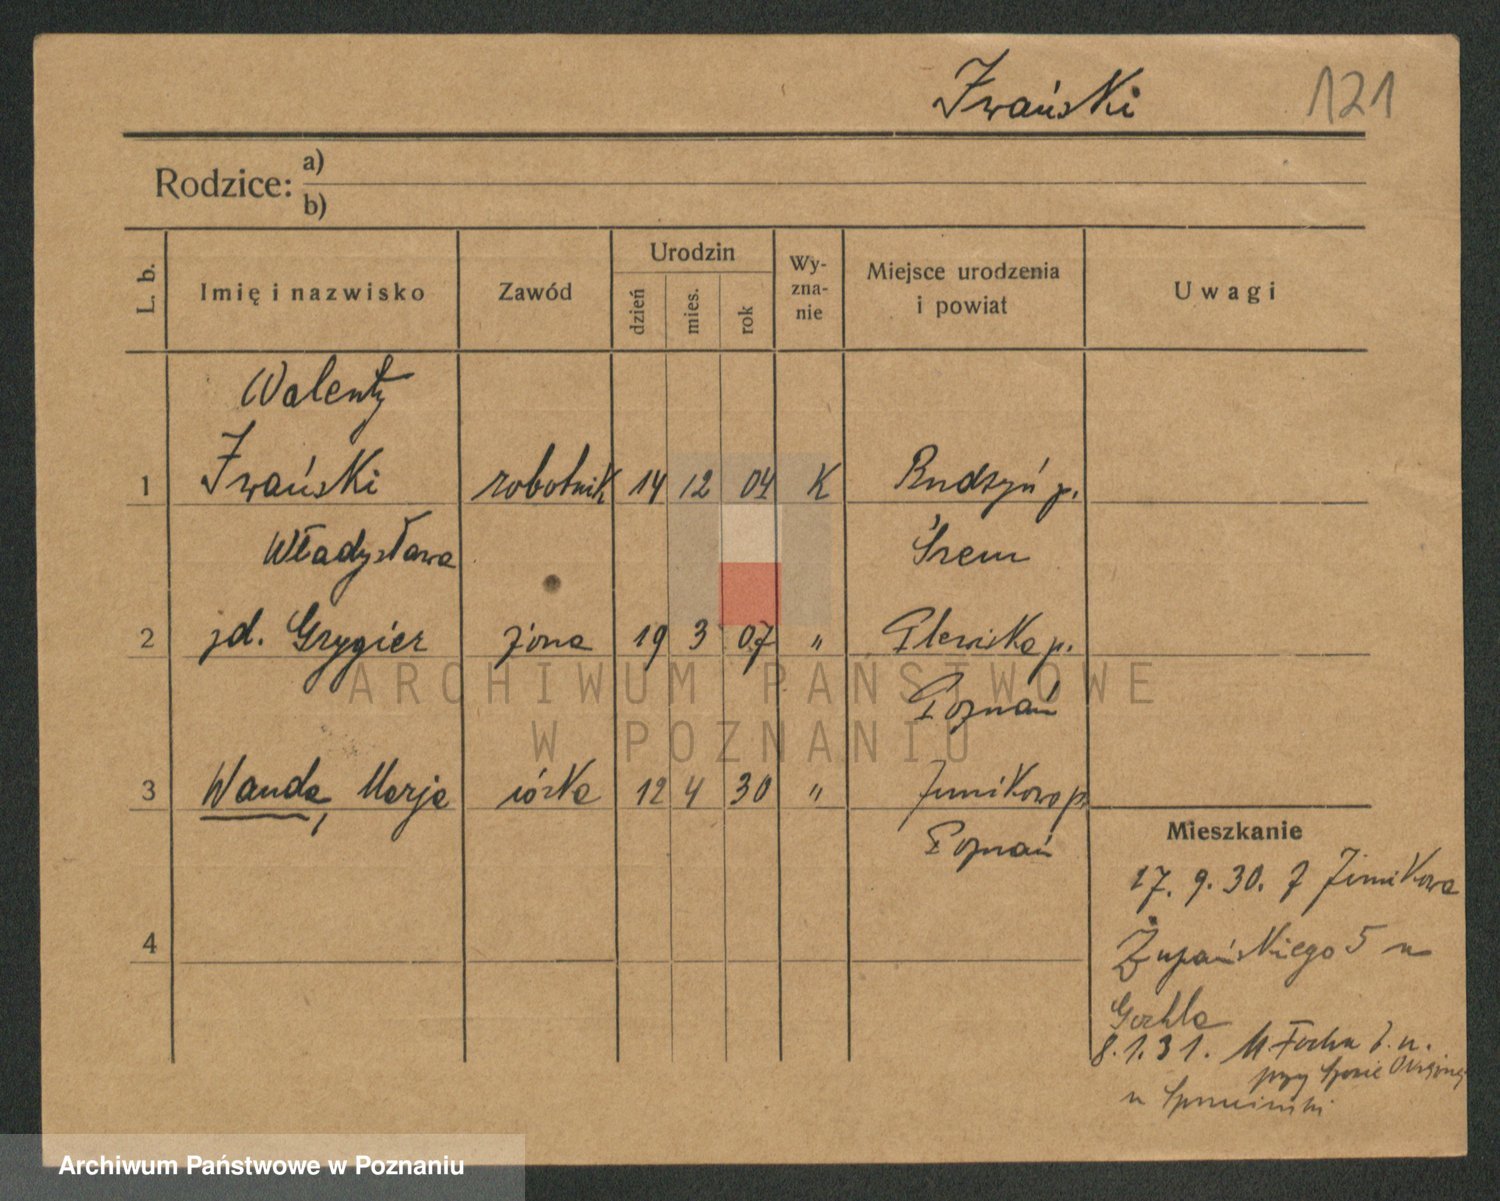 Iwański 121
Rodzice: a)
b)
L. b. Imię i nazwisko Zawód Urodzin dzień mies. rok Wy-zna-nie Miejsce urodzenia i powiat Uwagi
Walenty
1 Iwański robotnik 14 12 04 K Rudzyń p.
Władysława Śrem
2 zd. Grygier żona 19 3 07 " Plewiska p.
Poznań
3 Wanda, Marja córka 12 4 30 " Junikowo p.
Poznań
Mieszkanie
17. 9. 30. z Junikowa
4
Żupańskiego 5 u
8. 1. 31. M. Focha
przy
u
ARCHIWUM PAŃSTWOWE
W POZNANIU
Archiwum Państwowe w Poznaniu